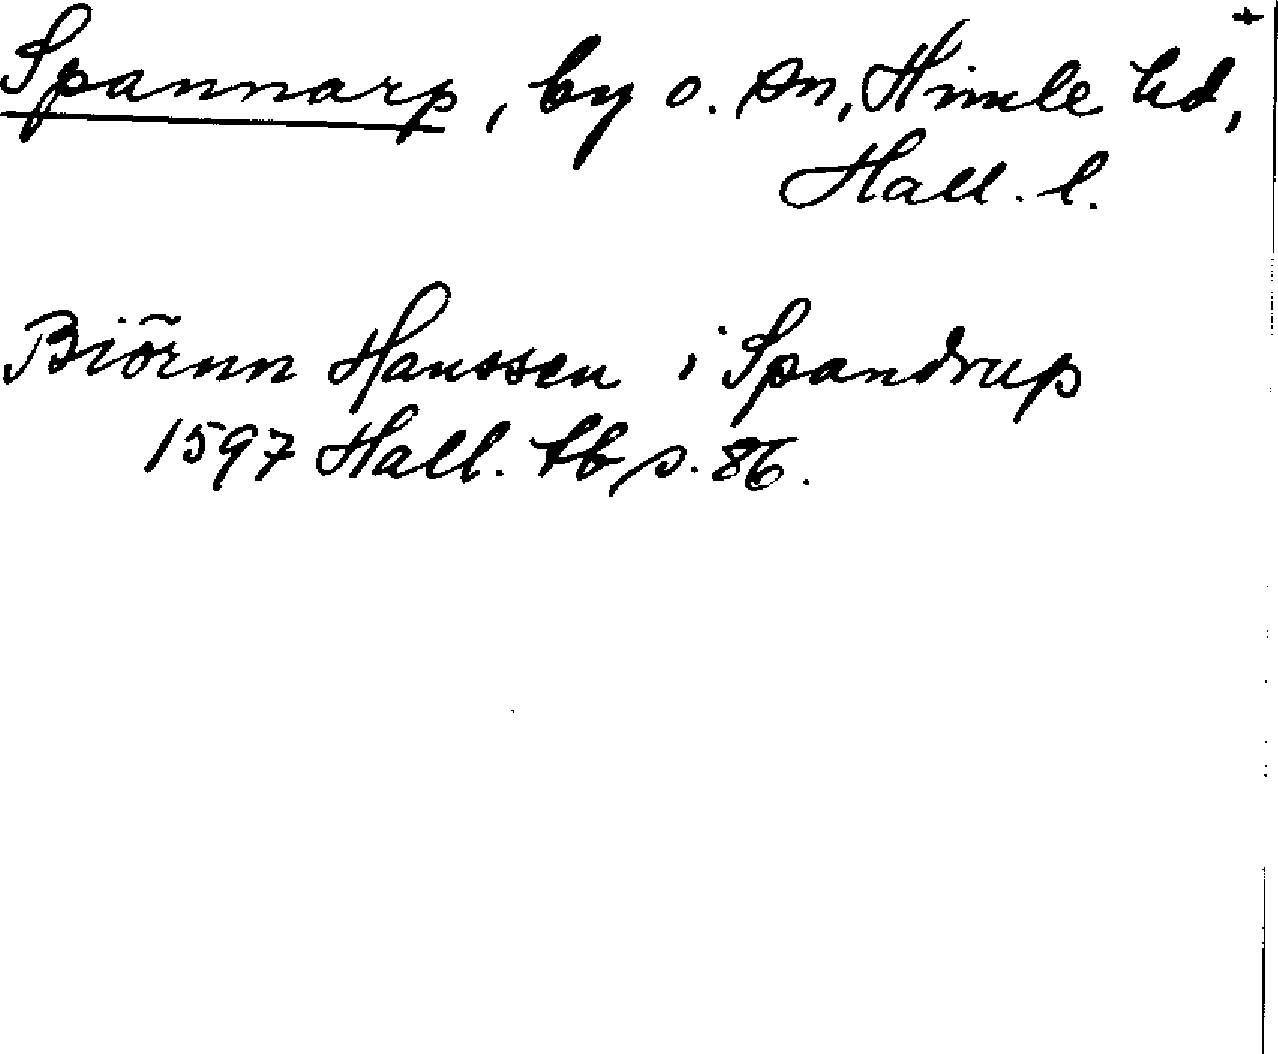 +
Spannarp, by o. sn, Himle hd,
Hall. l.
Biörnn Hanssen i Spandrup
1597 Hall. tb s. 86.